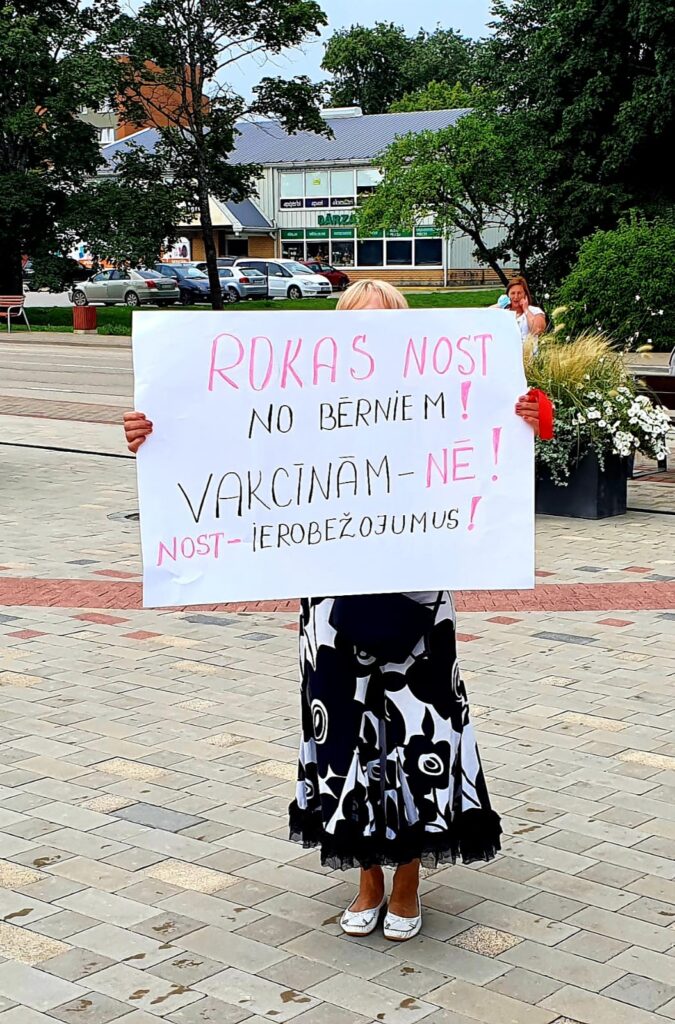 DĀRZA
ROKAS NOST
NO BĒRNIEM!
VAKCĪNĀM-NĒ!
NOST-IEROBEŽOJUMUS!